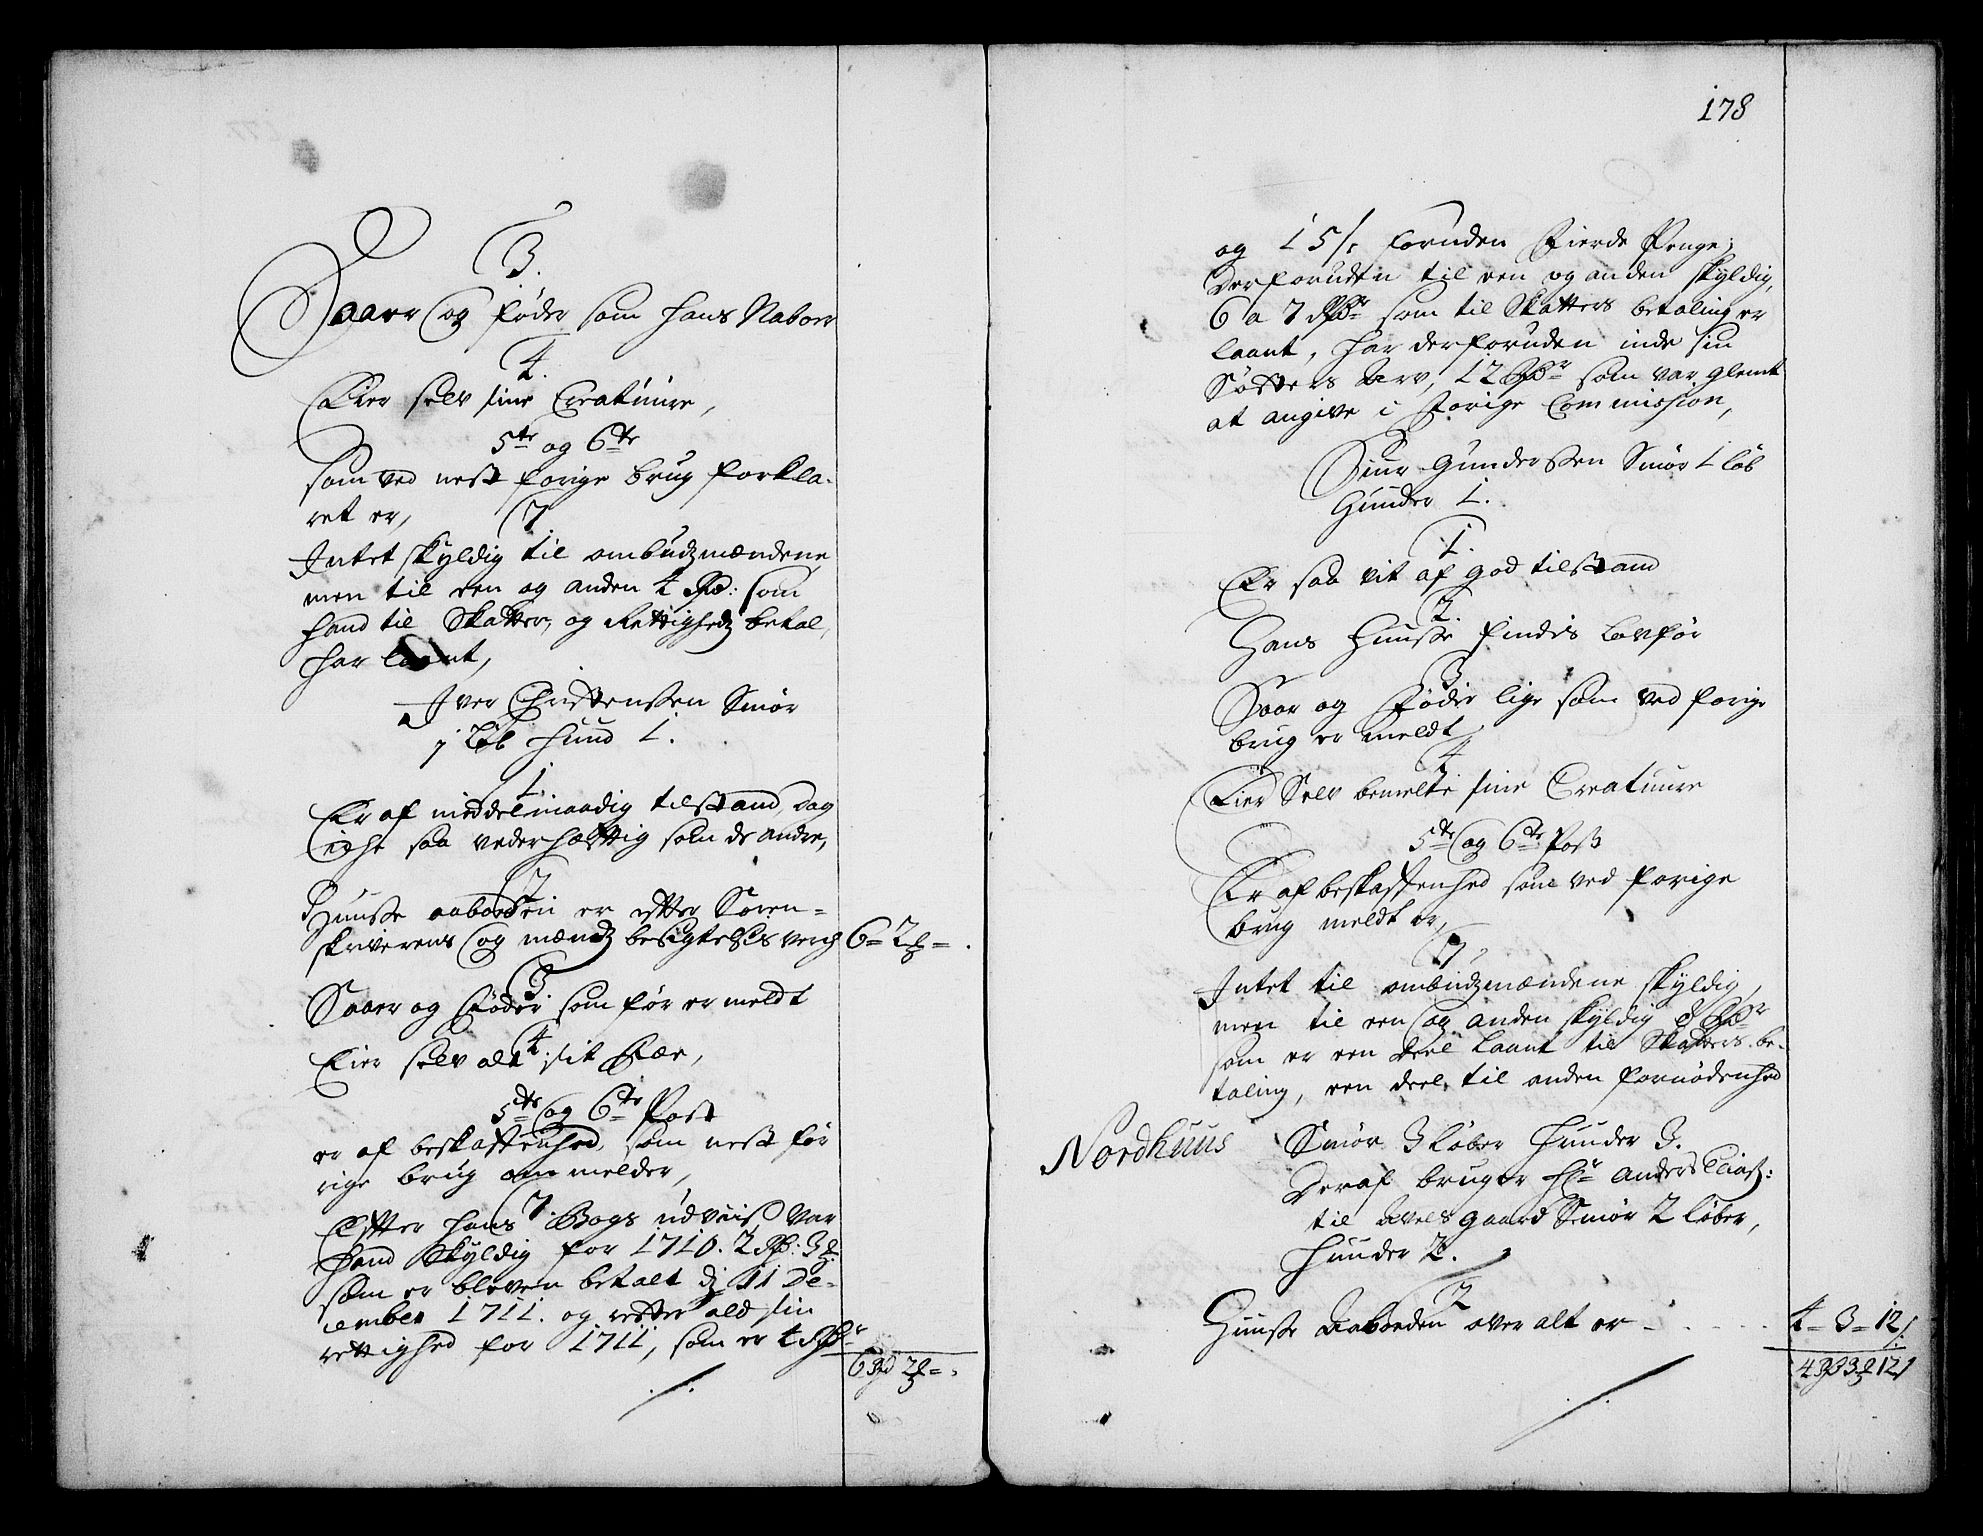 3.
Saaer og føder som hans Naboer
4.
Eier selv sine Creatuure,
5te og 6te
som ved nest forige brug forkla-
ret er,
7
Intet skyldig til ombudzmændene
men til een og anden 4 Rd: som
hand til Skatter, og Rettighedz betal,
har laant,
Iver Christenssen Smør
1 løb hund 1.
1.
Er af middelmaadig tilstand, dog
iche saa vederhæfftig som de andre,
2
Huusse aaboden er efter Soren-
skriverens og mændz besigtelsis verdj 6 = 2 =
3
Saaer og Føder som før er meldt
4
Eier selv alt sit Fæe,
5te og 6te Post
er af beskaffenhed, som nest før
rige brug om melder,
7.
Effter hans Bogs udviis var
hand Skyldig for 1710. 2 Rd: 3
som er bleven betalt d 11 De-
cember 1711. og rester ald sin
rettighed for 1711, som er 4 Rdr
6 Rd 2 =
178
og 15 s foruden Fierde Penge;
Derforuden til een og anden skyldig,
6 a 7 Rdr som til Skatters betaling er
laant, har derforuden inde sin
Søsters Arv, 12 Rdr som var glemt
at angive i Forige Commission,
Siur Gunderssen Smør 1 løb
Huuder 1.
1.
Er saa vit af god tilstand
2.
Hans Huusse findis lovfør
3
Saar og Føder lige som ved forige
brug er meldt
4
Eier Selv bemelte sine Creatuure
5te og 6te Post
Er af beskaffenhed som ved forige
brug meldt er,
7,
Intet til ombudzmændene skyldig,
men til een og anden skyldig 8 Rdr
som er een deel laant til Skatters be-
taling, een deel til anden fornødenhed
Nordhuus Smør 3 løber Huuder 3.
Deraf bruger Hr Anders
til Avels gaard Smør 2 løber,
Huuder 2.
2
Huusse Aaboeden over alt er - . - - - 4 - 3 - 12 s
4 Rd 3 12 s